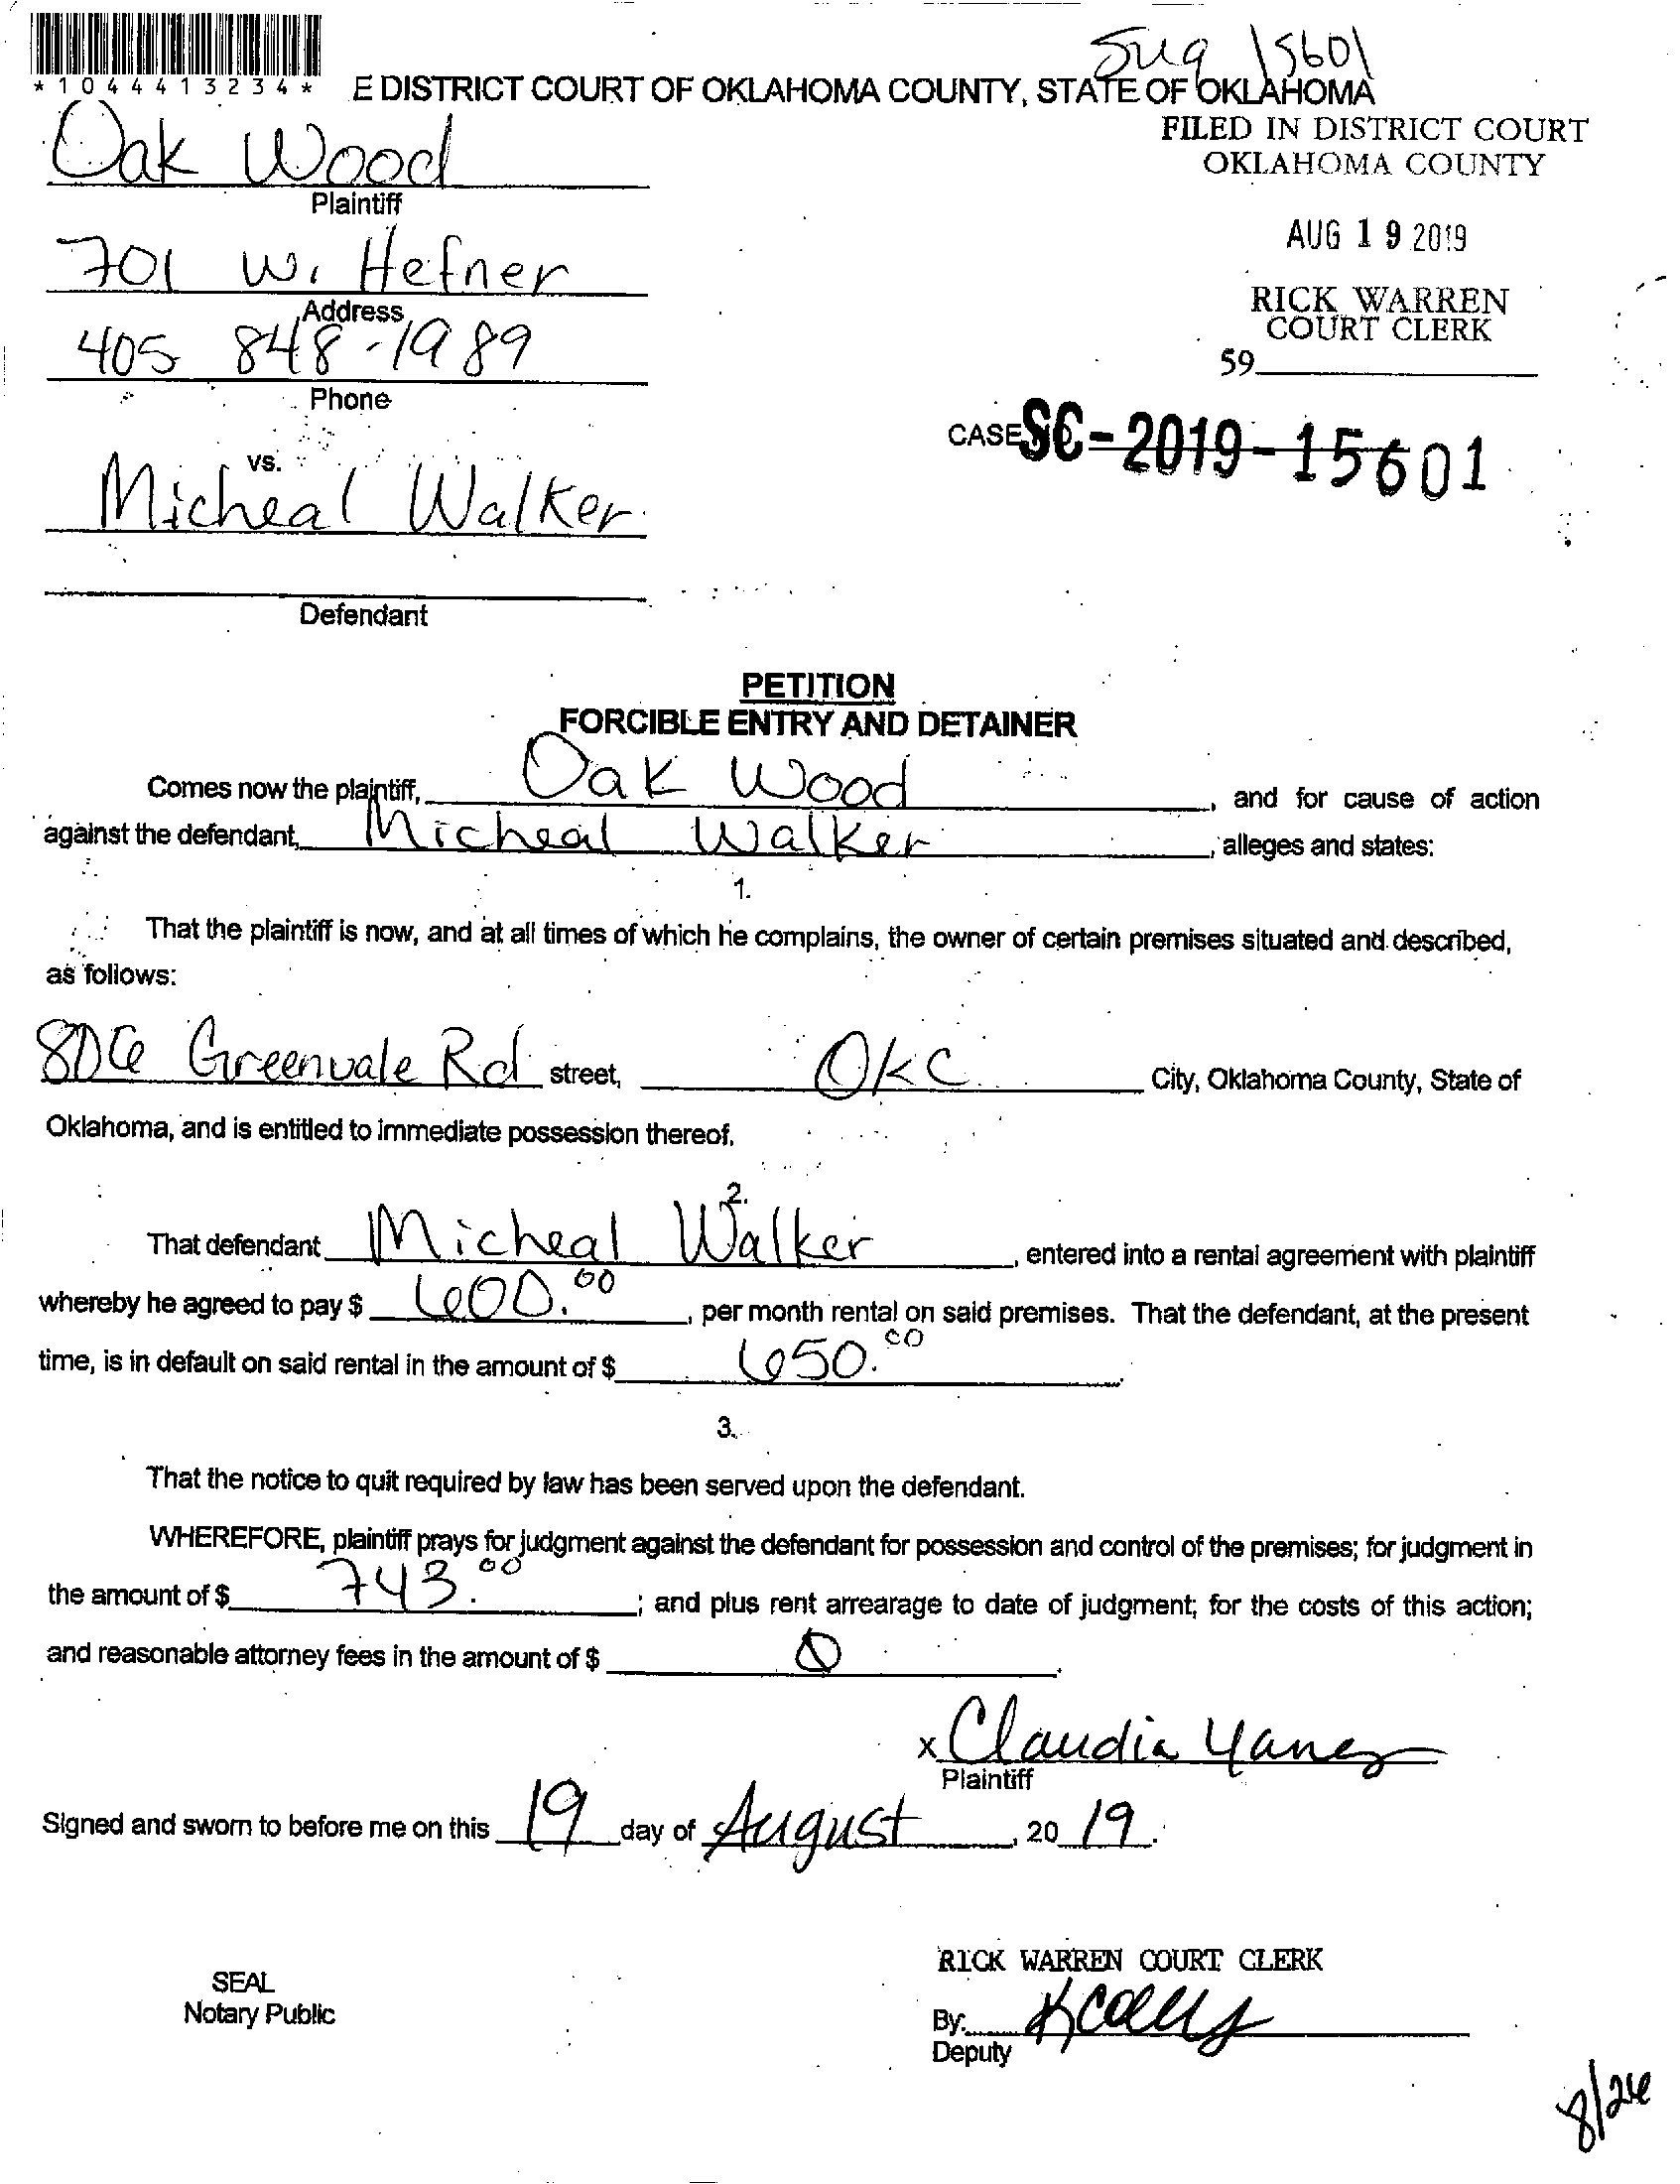 Sug 15601
*1044413234*
E DISTRICT COURT OF OKLAHOMA COUNTY, STATE OF OKLAHOMA
FILED IN DISTRICT COURT
OKLAHOMA COUNTY
Oak Wood
Plaintiff
AUG 19 2019
701 W. Hefner
Address
RICK WARREN
COURT CLERK
405 848-1989
Phone
59
CASE SC-2019-15601
vs.
Micheal Walker
Defendant
PETITION
FORCIBLE ENTRY AND DETAINER
Comes now the plaintiff, Oak Wood, and for cause of action
against the defendant, Micheal Walker, alleges and states:
1.
That the plaintiff is now, and at all times of which he complains, the owner of certain premises situated and described,
as follows:
806 Greenvale Rd street, OKC City, Oklahoma County, State of
Oklahoma, and is entitled to immediate possession thereof.
2.
That defendant Micheal Walker, entered into a rental agreement with plaintiff
whereby he agreed to pay $ 600.00, per month rental on said premises. That the defendant, at the present
time, is in default on said rental in the amount of $ 650.00.
3.
That the notice to quit required by law has been served upon the defendant.
WHEREFORE, plaintiff prays for judgment against the defendant for possession and control of the premises; for judgment in
the amount of $ 743.00; and plus rent arrearage to date of judgment; for the costs of this action;
and reasonable attorney fees in the amount of $ 0.
x Claudia Yanez
Plaintiff
Signed and sworn to before me on this 19 day of August, 20 19.
RICK WARREN COURT CLERK
SEAL
Notary Public
By:
Deputy
8/26